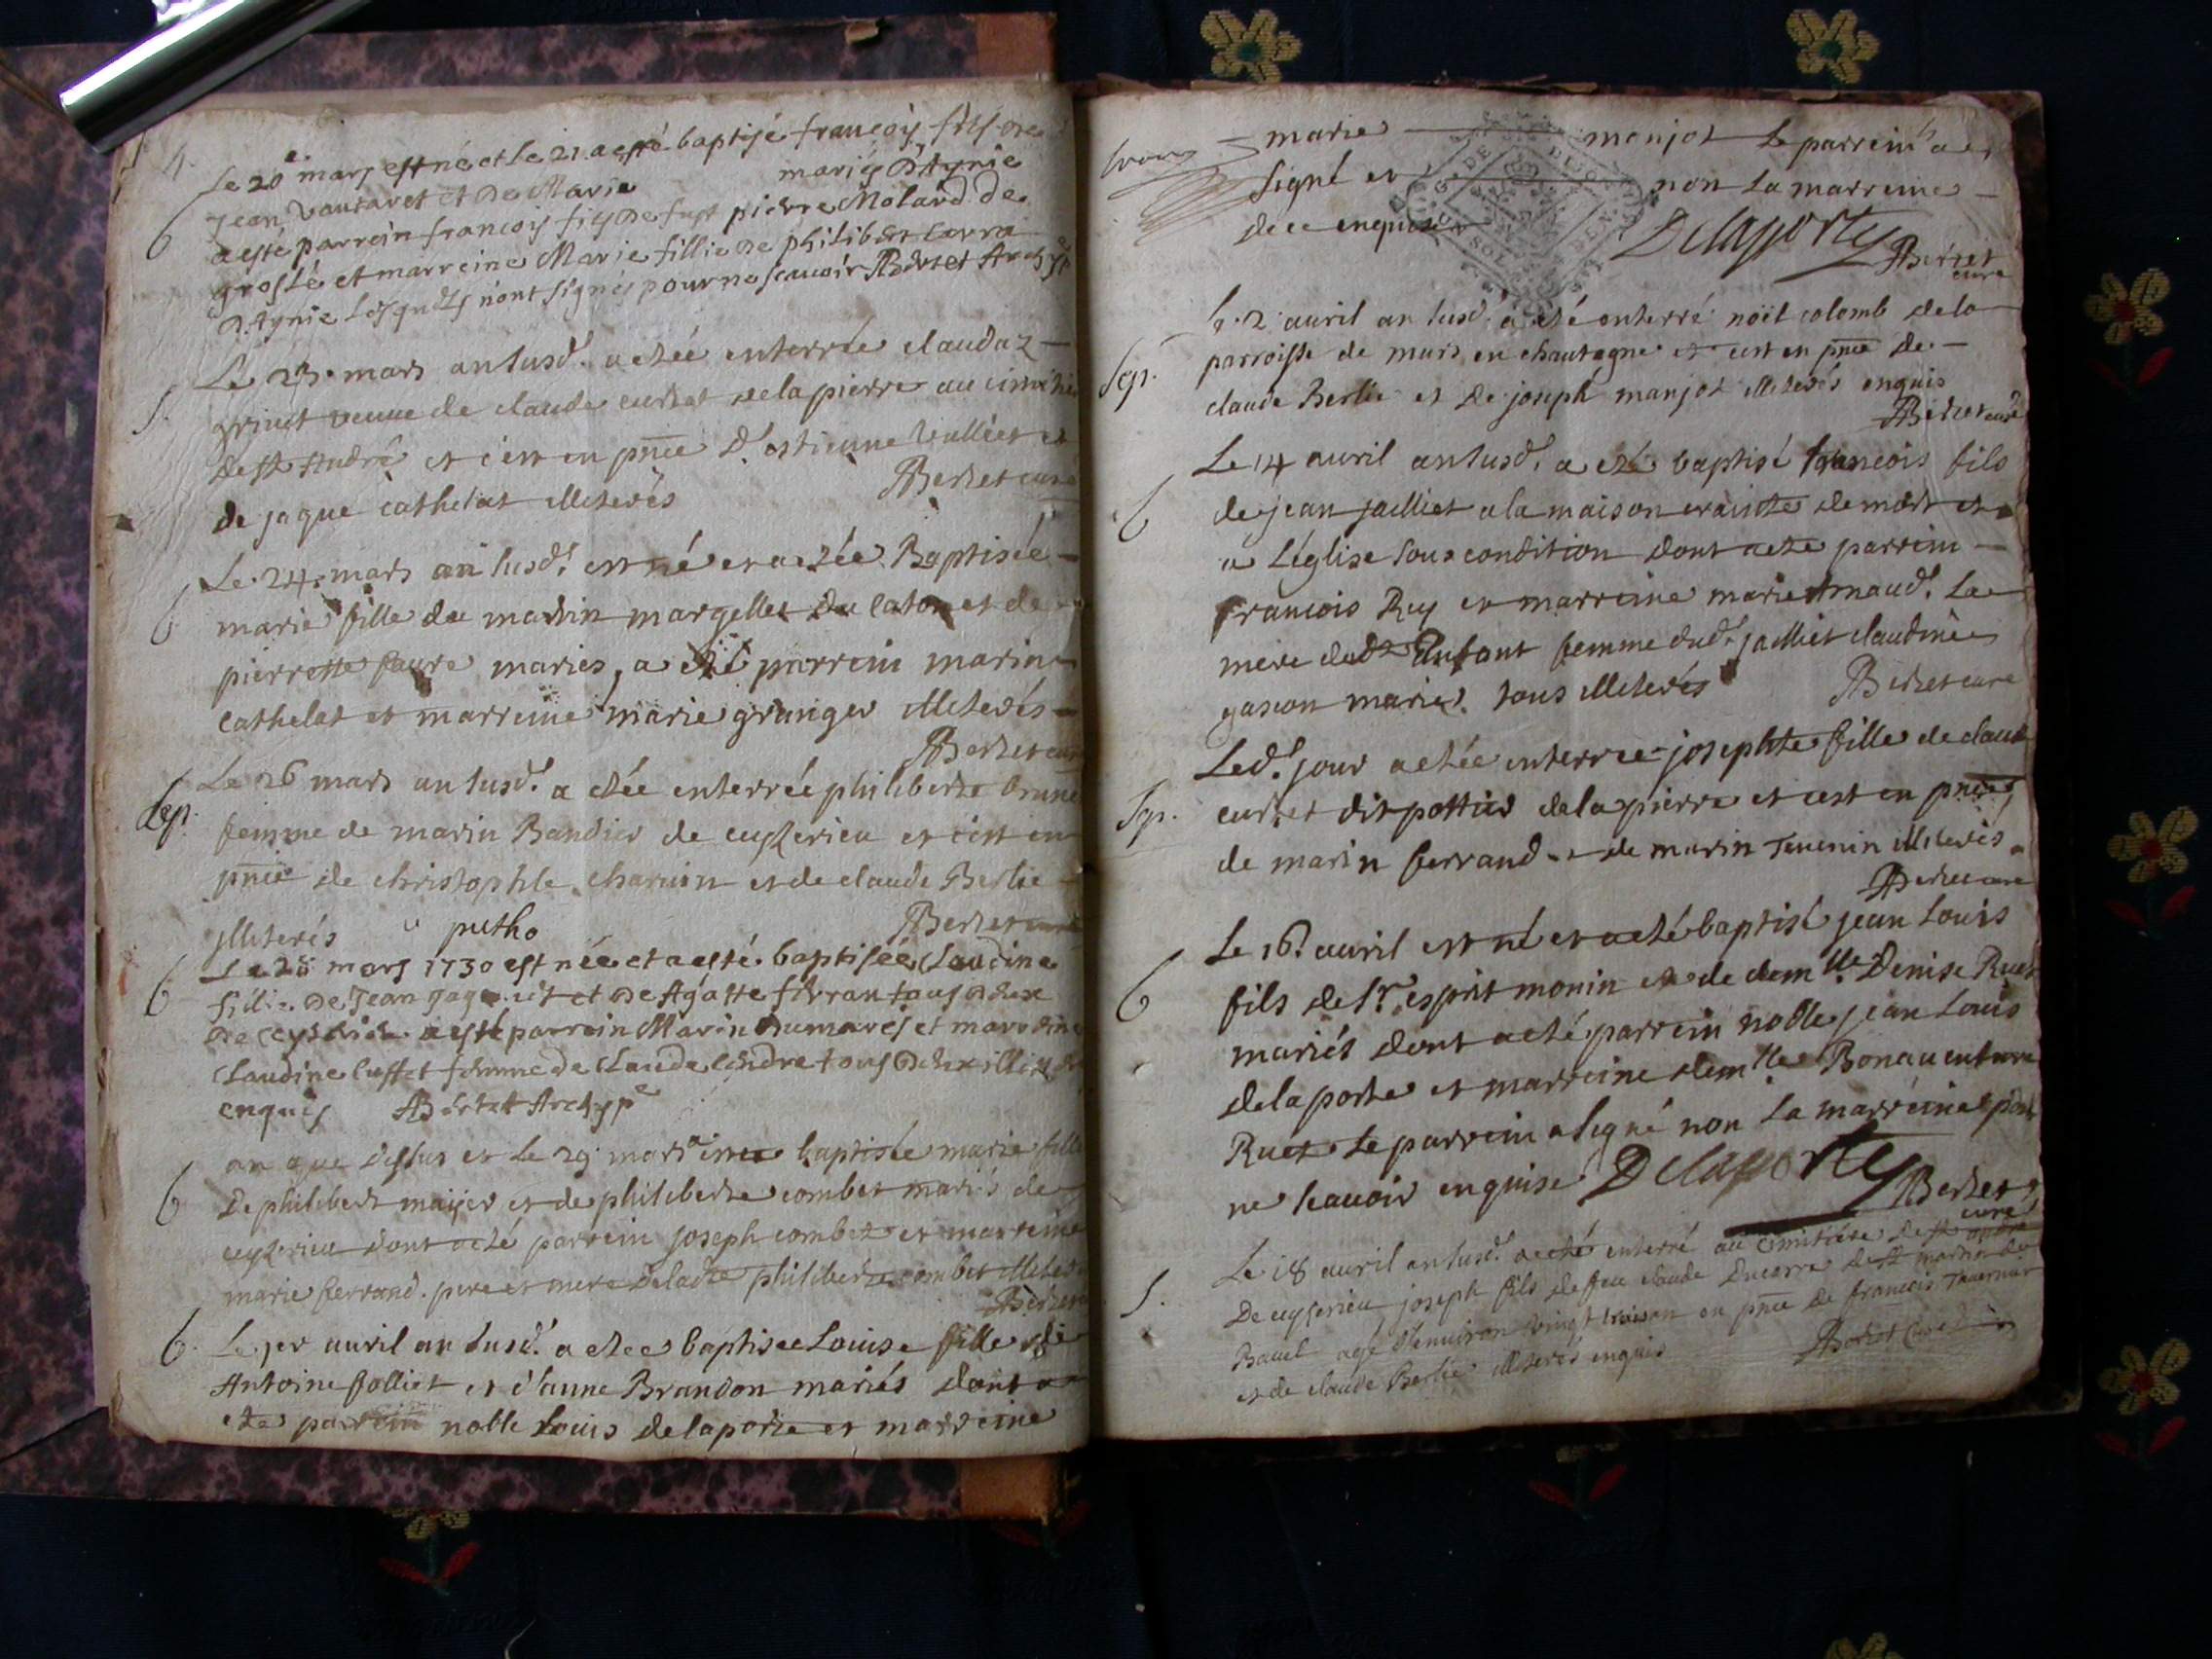 4.
Le 20e mars est né et le 21 a esté baptisé francois fils de
Jean vautaret et de Marie mariés d'Aynie
6
a esté parrein francois fils de fust pierre Molard de
groslé et marreine Marie fillie de philibert Corra
d'Aynie lesquels n'ont signés pour ne scauoir ABertet Archyp
Le 23. mars an susd. a etée enterrée claudaz
S.
grinet veuve de claude curtet de la pierre au cimetie
de st André et c'est en pnce d'estienne Vallier et
de jaque cathelat illiterés ABertet curé
Le 24. mars an susd. est né et a etée Baptisée
6
marie fille de marin margellet du laton et de
pierrette favre mariés, a eté parrein marin
cathelat et marreine marie granger illiterés
ABertet curé
Le 26 mars an susd. a etée enterrée philiberte brune
Sep.
femme de marin Bandier de cuyzerieu et c'est en
pnce de christophle charuin et de claude Berlie
illiterés putho ABertet curé
Le 28 mars 1730 est née et a esté baptisée Claudine
6
fillie de Jean et de Agatte ferran tous deux
de Ceyserieu a esté parrein Marin Dumarest et marreine
Claudine luffet femme de Claude Cendre tous deux illiterés
enquis ABertet Archyp
an que dessus et le 29 mars a eté baptisée marie fille
6
De philibert maijer et de philiberte combet mariés de
cuyzerieu dont a eté parrein joseph combet et marreine
marie ferrand. pere et mere de ladte philiberte combet illiterés
ABertet
6. Le 1er auril an susd. a etee baptisee Louise fille de
Antoine folliet et d'anne Brandon mariés dont a
ete parrein noble Louis delaporte et marreine
marie monjot Le parrein a
signé et non la marreine
de ce enquise Delaporte
ABertet
curé
Le 2 auril an susd. a eté enterré noël colomb de la
Sep.
parroisse de murs en chautagne et c'est en pnce de
claude Berlie et de joseph manjot illiterés enquis
ABertet curé
Le 14 auril an susd. a eté baptisé francois fils
6
de jean jailliet a la maison crainte de mort et
a L'église sous condition dont a ete parrein
francois Ruy et marreine marie Arnaud. La
mere dudt Enfant femme dud. jailliet claudine
gascon mariés. tous illiterés ABertet curé
Led. jour a etée enterrée josephte fille de claude
Sep.
curtet dit pottier de la pierre et c'est en pnce
de marin ferrand et de marin Tenenin illiterés
ABertet curé
Le 16. auril est né et a eté baptisé jean Louis
6
fils de sr. esprit monin et de demlle. Denise Ruet
mariés dont a eté parrein noble jean Louis
delaporte et marreine demlle Bonauenture
Ruet Le parrein a signé non La marreine pour
ne scauoir enquise Delaporte
ABertet
curé
Le 18 auril an susd. a eté enterré au cimitiere de st andré
S.
De cuyserieu joseph fils de feu claude Ducarre de st martin de
Bauel agé d'enuiron vingt trois an en pnce de francois Tauernier
et de claude Berlie illiterés enquis ABertet Curé